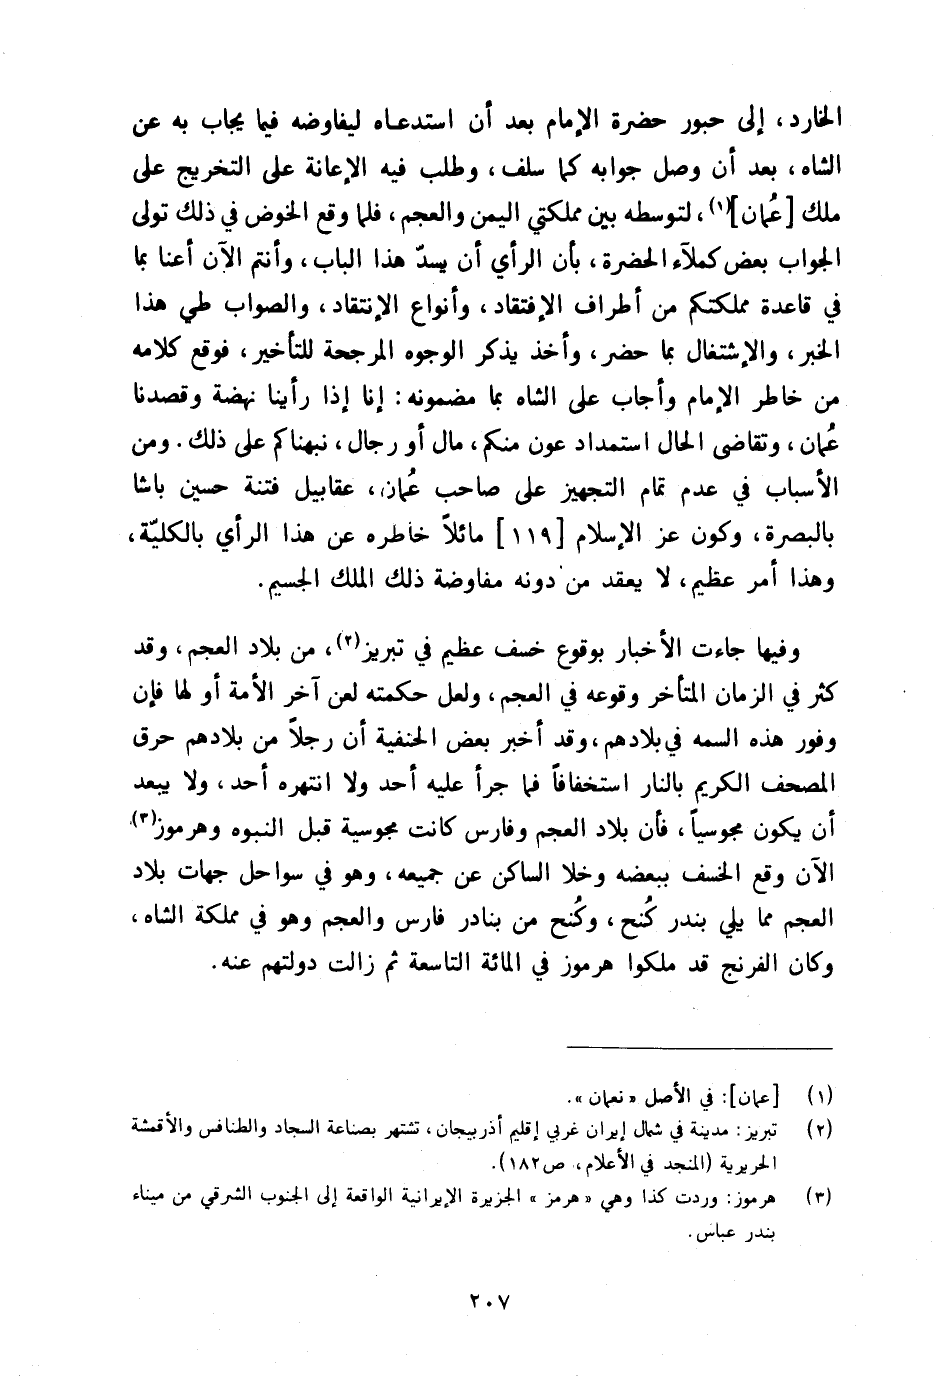 الخارد، إلى حبور حضرة الإمام بعد أن استدعاه ليفاوضه فيما يجاب به عن
الشاه، بعد أن وصل جوابه كما سلف، وطلب فيه الإعانة على التخريج على
ملك [عُمان](١)، لتوسطه بين مملكتي اليمن والعجم، فلما وقع الخوض في ذلك تولى
الجواب بعض كملآء الحضرة، بأن الرأي أن يسدّ هذا الباب، وأنتم الآن أعنا بما
في قاعدة مملكتكم من أطراف الإفتقاد، وأنواع الإنتقاد، والصواب طي هذا
الخبر، والإشتغال بما حضر، وأخذ يذكر الوجوه المرجحة للتأخير، فوقع كلامه
من خاطر الإمام وأجاب على الشاه بما مضمونه: إنا إذا رأينا نهضة وقصدنا
عُمان، وتقاضى الحال استمداد عون منكم، مال أو رجال، نبهناكم على ذلك. ومن
الأسباب في عدم تمام التجهيز على صاحب عُمان، عقابيل فتنة حسين باشا
بالبصرة، وكون عز الإسلام [١١٩] مائلاً خاطره عن هذا الرأي بالكليّة،
وهذا أمر عظيم، لا يعقد من دونه مفاوضة ذلك الملك الجسيم.
وفيها جاءت الأخبار بوقوع خسف عظيم في تبريز(٢)، من بلاد العجم، وقد
كثر في الزمان المتأخر وقوعه في العجم، ولعل حكمته لعن آخر الأمة أو لها فإن
وفور هذه السمه في بلادهم، وقد أخبر بعض الحنفية أن رجلاً من بلادهم حرق
المصحف الكريم بالنار استخفافاً فما جرأ عليه أحد ولا انتهره أحد، ولا يبعد
أن يكون مجوسياً، فأن بلاد العجم وفارس كانت مجوسية قبل النبوه وهرموز(٣)
الآن وقع الخسف ببعضه وخلا الساكن عن جميعه، وهو في سواحل جهات بلاد
العجم مما يلي بندر كُنح، وكُنح من بنادر فارس والعجم وهو في مملكة الشاه،
وكان الفرنج قد ملكوا هرموز في المائة التاسعة ثم زالت دولتهم عنه.
(١) [عمان]: في الأصل «نعمان».
(٢) تبريز: مدينة في شمال إيران غربي إقليم أذربيجان، تشتهر بصناعة السجاد والطنافس والأقمشة
الحريرية (المنجد في الأعلام، ص١٨٢).
(٣) هرموز: وردت كذا وهي «هرمز» الجزيرة الإيرانية الواقعة إلى الجنوب الشرقي من ميناء
بندر عباس.
٢٠٧